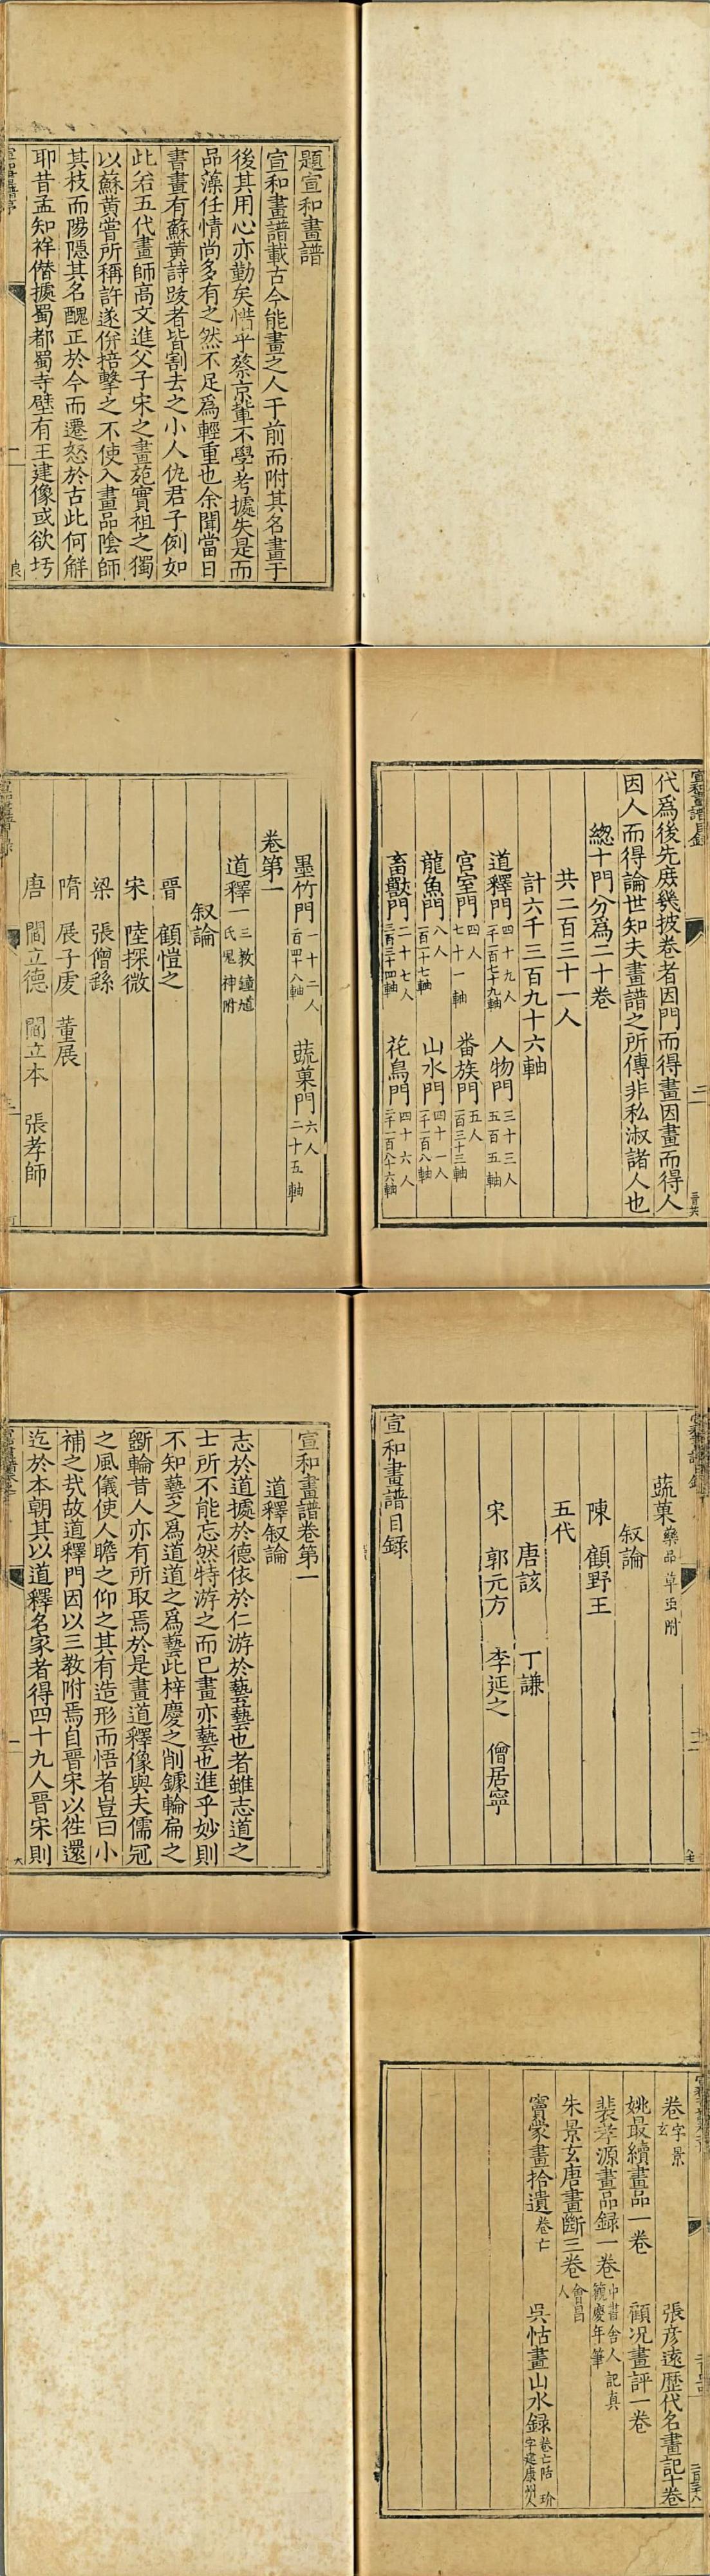 題宣和畫譜
宣和畫譜載古今能畫之人于前而附其名畫于
後其用心亦勤矣惜乎蔡京輩不學考據失是而
品藻任情尚多有之然不足爲輕重也余聞當日
書畫有蘇黄詩跋者皆割去之小人仇君子例如
此若五代畫師高文進父子宋之畫苑實祖之獨
以蘇黄嘗所稱許遂併掊擊之不使入畫品陰師
其枝而陽隱其名醜正於今而遷怒於古此何觧
耶昔孟知祥僣據蜀都蜀寺壁有王建像或欲圬
宣和畫譜目録
代爲後先庻幾披卷者因門而得畫因畫而得人
因人而得論世知夫畫譜之所傳非私淑諸人也
緫十門分爲二十卷
共二百三十一人
計六千三百九十六軸
道釋門四十九人一千一百七十九軸 人物門三十三人五百五軸
宫室門四人七十一軸 畨族門五人一百三十三軸
龍魚門八人一百一十七軸 山水門四十一人一千一百八軸
畜獸門二十七人三百二十四軸 花鳥門四十六人二千一百八十六軸
墨竹門一十二人一百四十八軸 蔬菓門六人二十五軸
卷第一
道釋一三教鐘馗氏鬼神附
叙論
晋 顧愷之
宋 陸探微
梁 張僧繇
隋 展子䖍 董展
唐 閻立德 閻立本 張孝師
蔬菓藥品草虫附
叙論
陳 顧野王
五代
唐該 丁謙
宋 郭元方 李延之 僧居寧
宣和畫譜目録
宣和畫譜卷第一
道釋叙論
志於道據於德依於仁游於藝藝也者雖志道之
士所不能忘然特游之而已畫亦藝也進乎妙則
不知藝之爲道道之爲藝此梓慶之削鐻輪扁之
斵輪昔人亦有所取焉於是畫道釋像與夫儒冠
之風儀使人瞻之仰之其有造形而悟者豈曰小
補之㢤故道釋門因以三教附焉自晋宋以徃還
迄於本朝其以道釋名家者得四十九人晋宋則
卷字景玄 張彦遠歴代名畫記十卷
姚最續畫品一卷 顧况畫評一卷
裴孝源畫品録一卷中書舎人記真觀慶年筆
朱景玄唐畫斷三卷會昌人
竇蒙畫拾遺卷亡 吳恬畫山水録卷亡恬 玢字建康州人